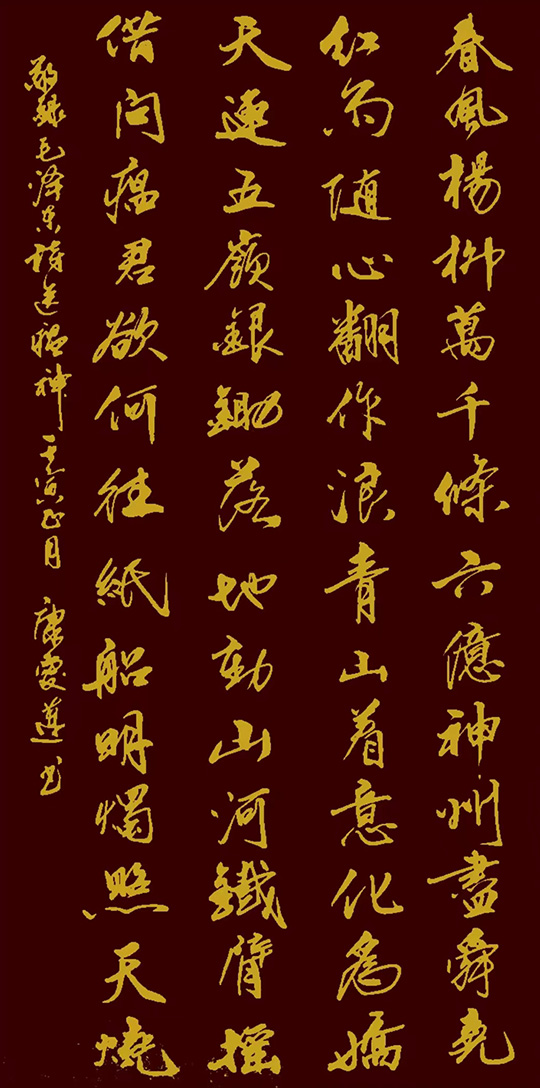 春風楊柳萬千條六億神州盡舜堯
红雨随心翻作浪青山着意化為嬌
天連五嶺銀鋤落地動山河鐵臂摇
借問瘟君欲何往紙船明燭照天燒
敬録毛泽东詩送瘟神 壬寅正月 康雯书